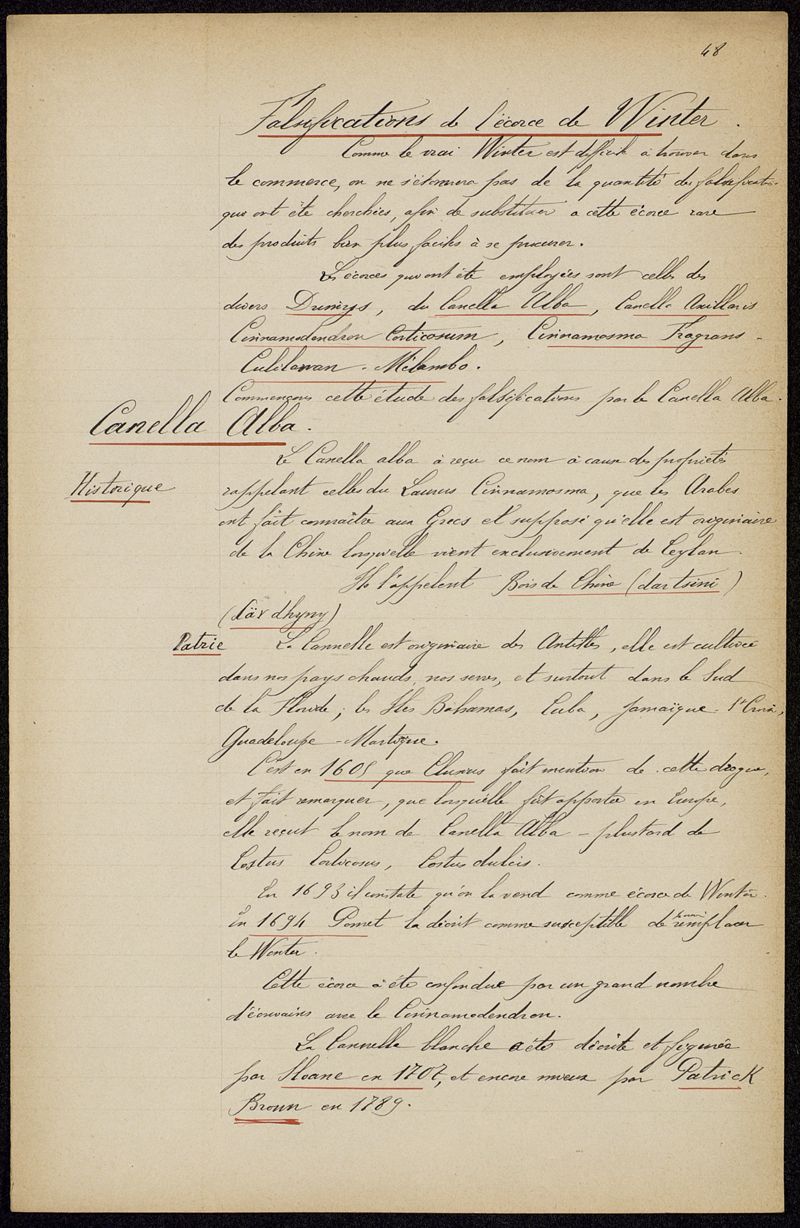 48
Falsifications de l'écorce de Winter.
Comme le vrai Winter est difficile à trouver dans
le commerce, on ne s'étonnera pas de la quantité des falsifications
qui ont été cherchées, afin de substituer a cette écorce rare
des produits bien plus faciles à se procurer.
Les écorces qui ont été employées sont celles des
divers Drimys, du Canella Alba, Canella Axillaris
Cinnamodendron Corticosum, Cinnamosma Fragrans -
Culilawan - Mélambo.
Commençons cette étude des falsifications par le Canella Alba.
Canella Alba.
Historique
Le Canella alba à reçu ce nom à cause des propriétés
rappelant celles du Laurus Cinnamosma, que les Arabes
ont fait connaître aux Grecs et supposé qu'elle est originaire
de la Chine lorsqu'elle vient exclusivement de Ceylan.
Ils l'appelent Bois de Chine (dartsini)
(där dhyny)
Patrie
La Cannelle est originaire des Antilles, elle est cultivée
dans nos pays chauds, nos serres, et surtout dans le Sud
de la Floride, les Iles Bahamas, Cuba, Jamaïque - Ste Croix,
Guadeloupe - Martinique.
C'est en 1605 que Clusius fait mention de cette drogue,
et fait remarquer, que lorsqu'elle fût apportée en Europe,
elle reçut le nom de Canella Alba - plus tard de
Costus Corticosus, Costus dulcis.
En 1693 il constate qu'on la vend comme écorce de Winter.
En 1694 Pomet la décrit comme susceptible de remplacer
le Winter.
Cette écorce à été confondue par un grand nombre
d'écrivains avec le Cinnamodendron.
La Cannelle blanche a été décrite et figurée
par Sloane en 1707, et encore mieux par Patrick
Brown en 1789.